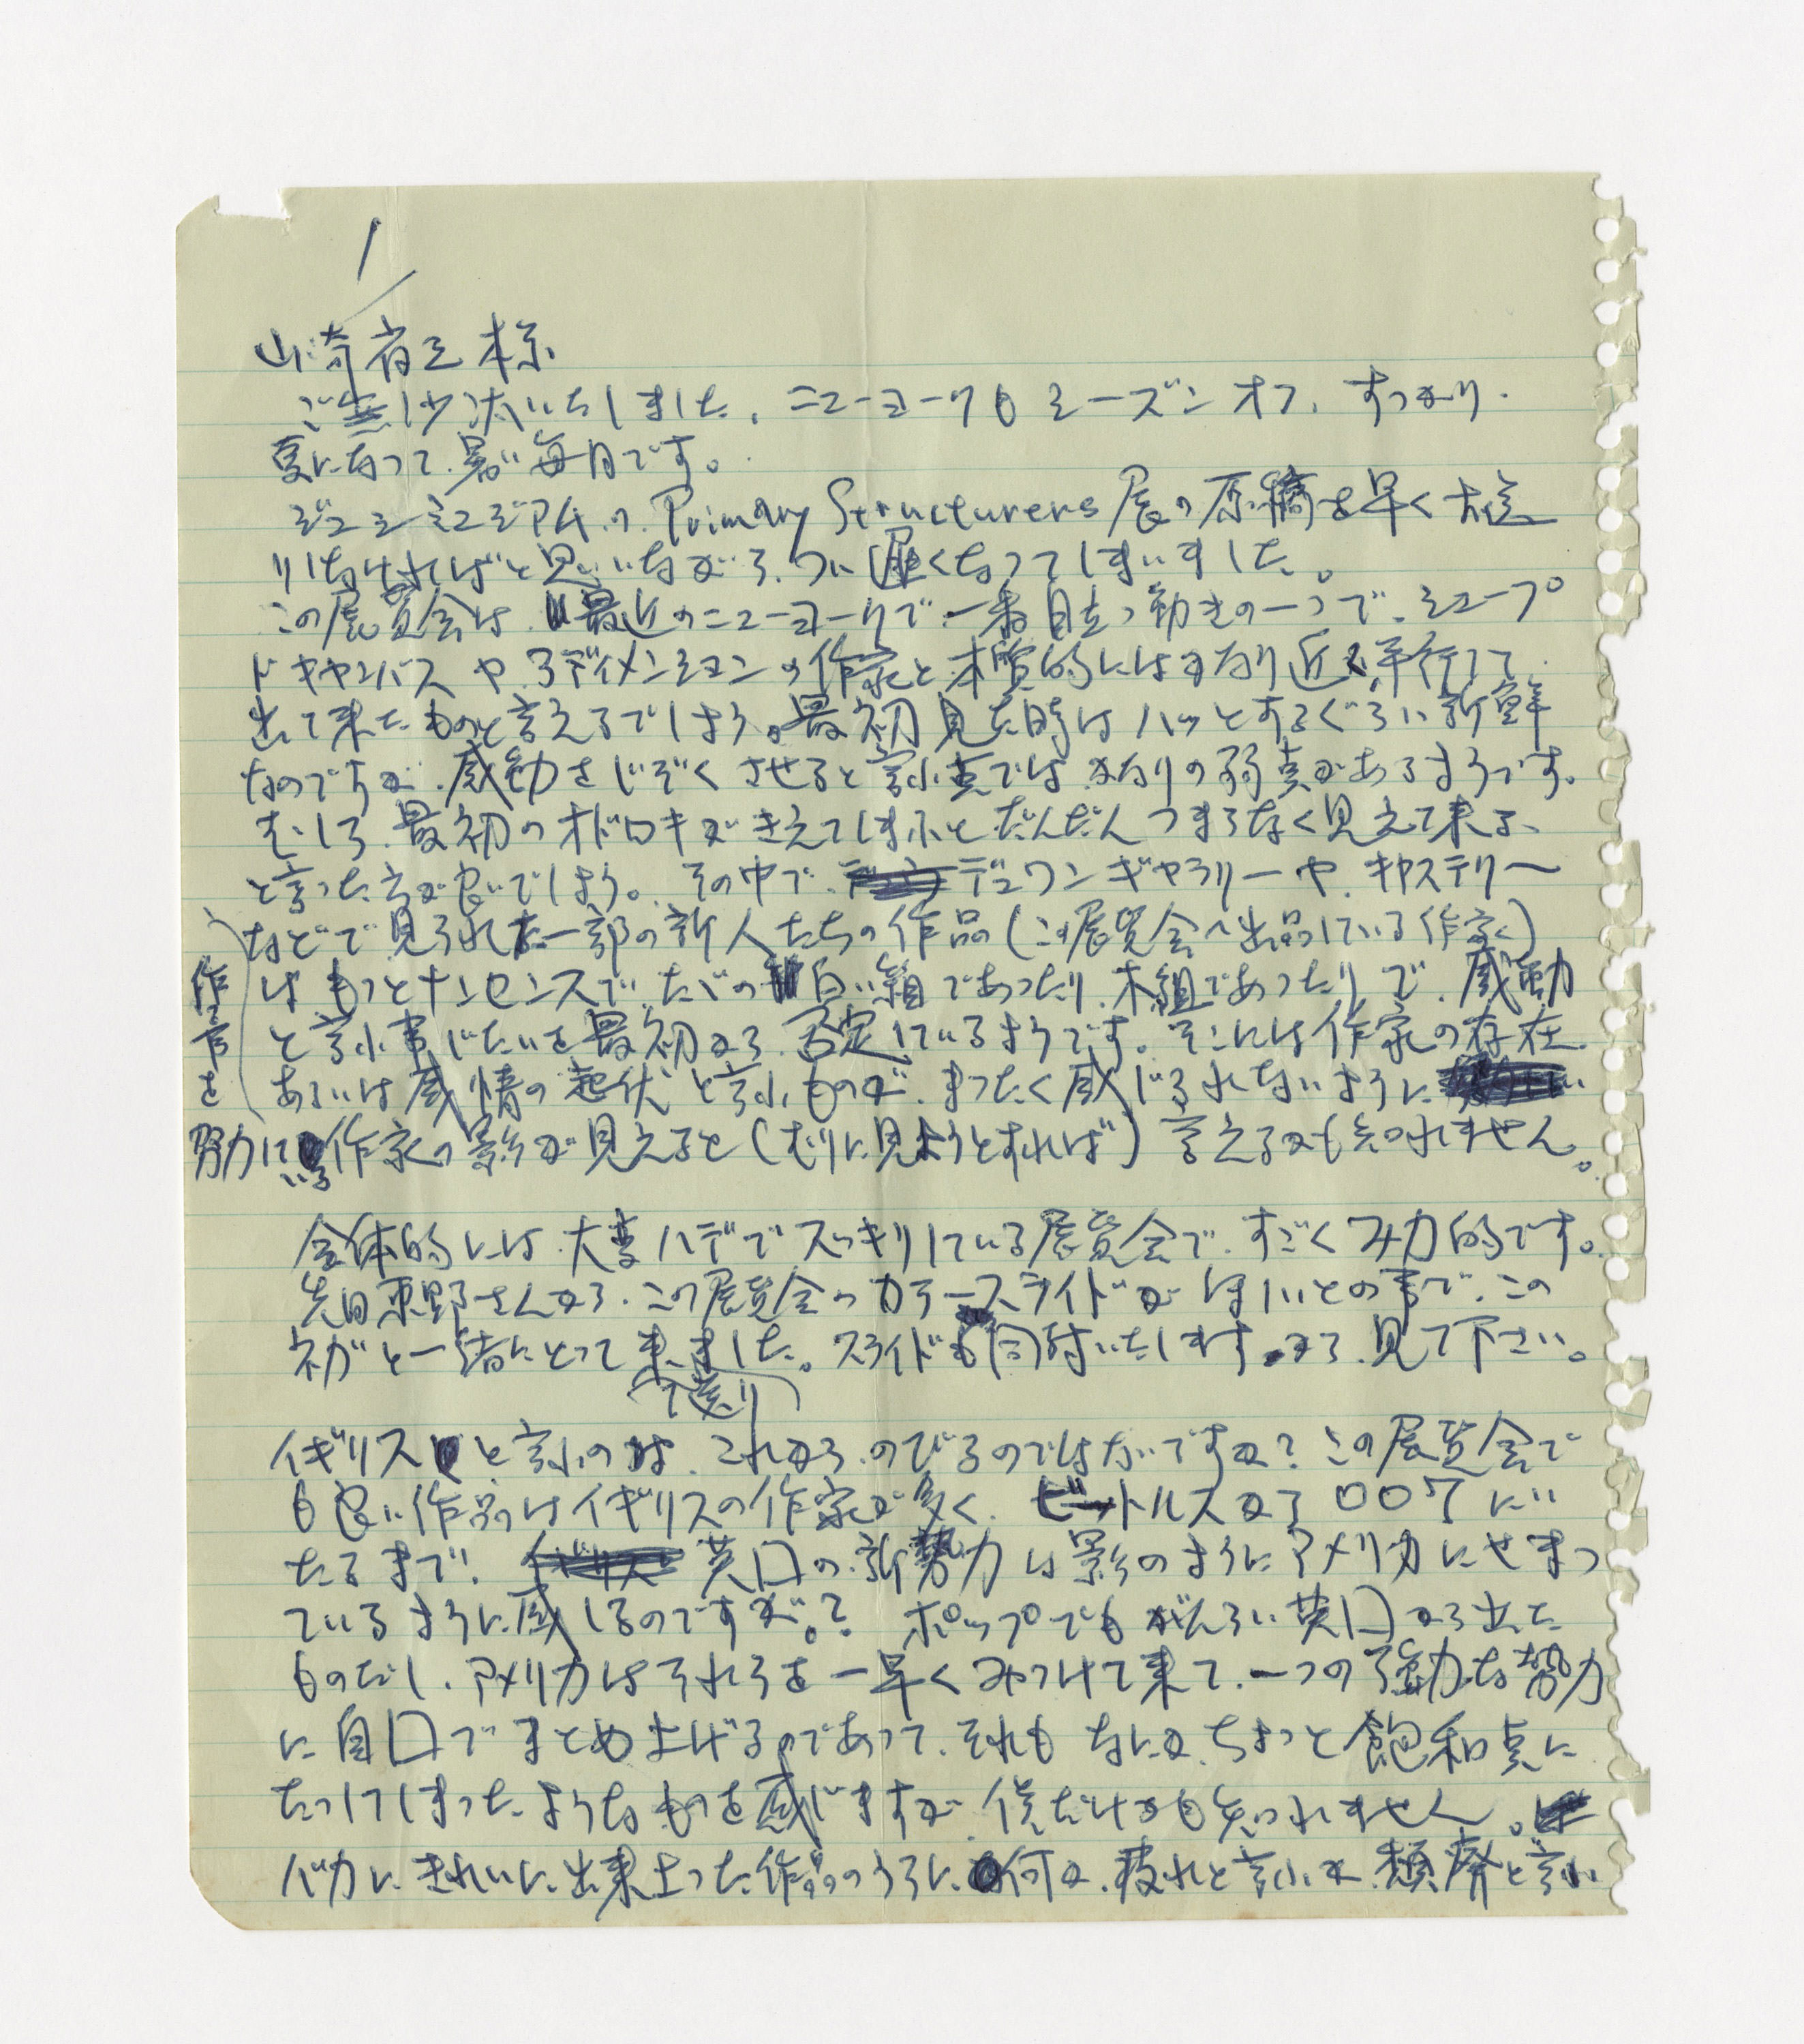 1
山崎省三様
ご無沙汰いたしました、ニューヨークもシーズンオフ、すっかり
夏になって、暑い毎日です。
ジュユーミュージアムの Primary Structurers 展の原稿を早く大急
りしなければと思いながら、つい遅くなってしまいました。
この展覧会は、最近のニューヨークで一番目立つ動きの一つで、シェープ
ドキャンバスや、3ディメンションの作家と本質的にはかなり近く、平行して
出て来たものと言えるでしょう。最初見た時はハッとするぐらい新鮮
なのですが、感動をじぞくさせると言ふ点では、かなりの弱点があるようです。
むしろ、最初のオドロキがきえてしまふとだんだんつまらなく見えて来る、
と言った方が良いでしょう。その中で、デュワンギャラリーや、キャステリー
などで見られた一部の新人たちの作品(この展覧会へ出品している作家)
はもっとナンセンスで、たゞの白い箱であったり、木組であったりで、感動
と言ふ事じたいを最初から、否定しているようです。そこには作家の存在
あるいは感情の起伏と言ふものが、まったく感じられないように
作
者
を
努力している作家の影が見えると(むりに見ようとすれば)言えるかも知れません。
全体的には、大変ハデでスッキリしている展覧会で、すごくみ力的です。
先日東野さんから、この展覧会のカラースライドがほしいとの事で、この
ネガと一緒にとって来ました。スライドも同封いたしますから、見て下さい。
(て送り)
イギリスと言ふのは、これから、のびるのではないですか?この展覧会で
も良い作品はイギリスの作家が多く、ビートルスから007にい
たるまで! 英囗の新勢力は影のようにアメリカにせまっ
ているように感じるのですが。? ポップでもがんらい英囗から出た
ものだし、アメリカはそれらを一早くみつけて来て、一つの強力な勢力
に自囗でまとめ上げるのであって、それもなにか、ちょっと飽和点に
たっしてしまったようなものを感じますが、僕だけかも知れません。
バカにきれいに出来上った作品のうらに、何か、疲れと言ふか、頽廃と言ふ